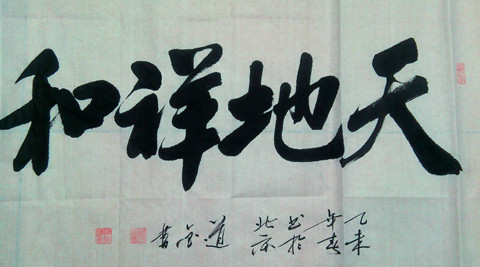 天地祥和
乙未年春书於北京 道